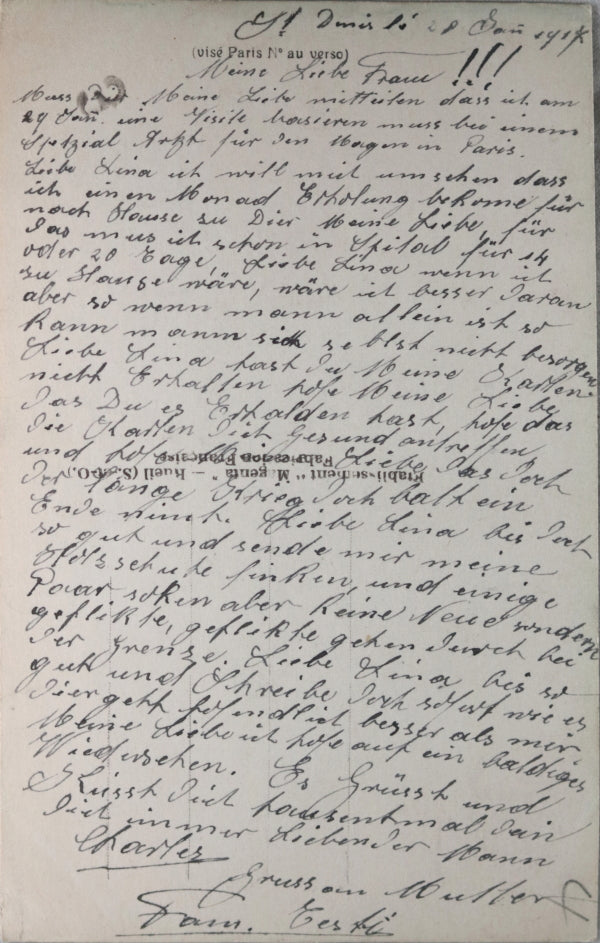 St Denis le 28 Jan 1917
(visé Paris N° au verso)
Meine Liebe Frau !!!
Muss Dir Meine Liebe mitteilen dass ich am
29 Jan. eine Visite basieren muss bei einem
Spetzial Artzt für den Magen in Paris.
Liebe Lina ich will mich umsehen dass
ich einen Monad Erholung bekome für
nach Hause zu Dier Meine Liebe, für
das mus ich schon in Spital für 14
oder 20 Tage, Liebe Lina wenn ich
zu Hause wäre, wäre ich besser daran
aber so wenn mann allein ist so
kann mann sich selbst nicht besorgen
Liebe Lina hast Du Meine Karten
nicht Erhalten hofe Meine Liebe
das Du es Erhalden hast, hofe das
die Karten dich Gesund antreffen,
und hofe Meine Liebe das doch
Etablissement "Magenta" - Rueil (S.-et-O.)
Fabrication Française
der lange Krieg doch balt ein
Ende nimt. Liebe Lina bis doch
so gut und sende mir meine
Holzschuhe finken, und einige
Paar soken aber keine Neue sondern
geflikte, geflikte gehen durch bei
der Grenze. Liebe Lina bis so
gut und Schreibe doch sofort wie es
Dier geht hofendlich besser als mir
Meine Liebe ich hofe auf ein baldiges
Wiedersehen. Es Grüsst und
Küsst dich tausentmal dein
dich immer Liebender Mann
Charles
Gruss an Mutter
Fam.